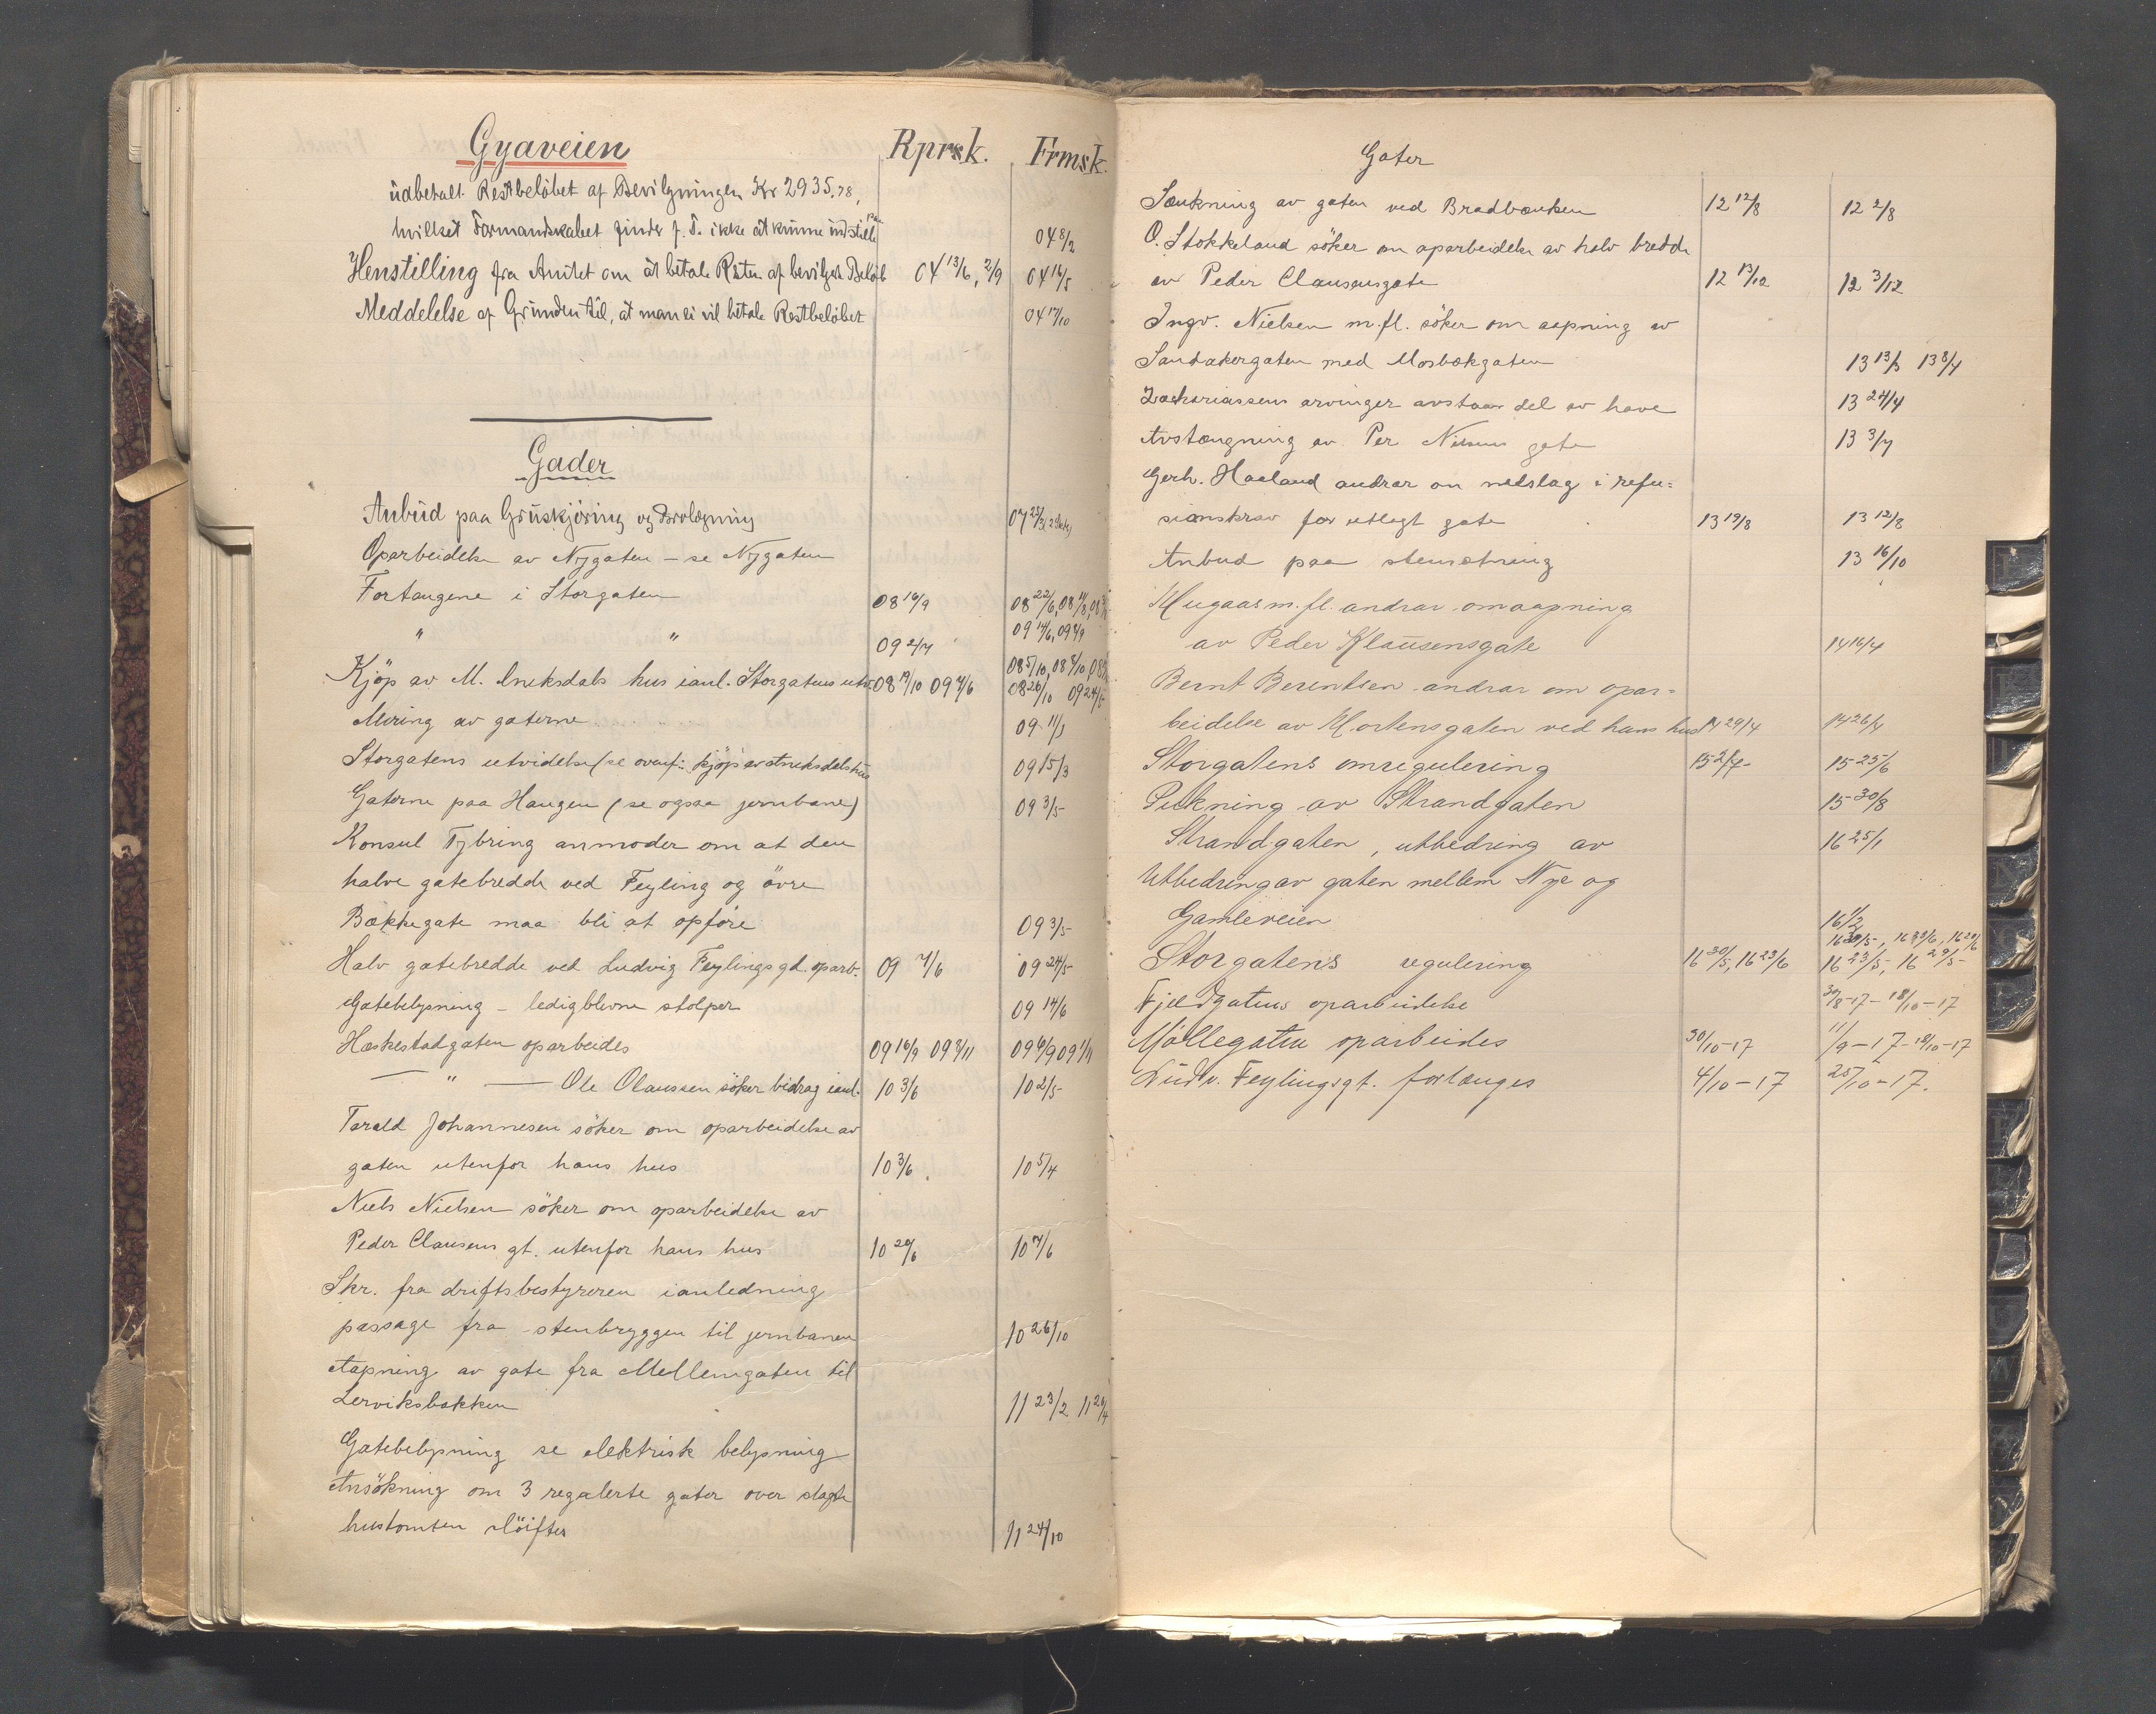 Gyaveien Rprsk. Frmsk.
udbetalt Restbeløbet af Bevilgningen Kr 2935.78,
hvilket Formandskabet finder f. T. ikke at kunne indstille paa 04 8/2
Henstilling fra Amtet om at betale Resten af bevilget Beløb 04 13/6, 2/9 04 16/5
Meddelelse af Grunden til, at man ei vil betale Restbeløbet 04 17/10
Gader
Anbud paa Gruskjøring og Brolægning
Oparbeidelse av Nygaten - se Nygaten
Fortaugene i Storgaten 08 16/9
" " 09 2/7 09 14/6, 09
Kjöp av M. hus ianl. Storgatens utv. 08 19/10 09 4/6 08 26/10 09 24/5
av gaterne 09 11/1
Storgatens utvidelse (se ovenf: kjöp av hus 09 15/3
Gaterne paa Haugen (se ogsaa jernbane) 09 3/5
Konsul Tybring anmoder om at den
halve gatebredde ved Feyling og övre
Bækkegate maa bli at opföre 09 3/5
Halv gatebredde ved Ludvig Feylings gd. oparb. 09 4/6 09 24/5
Gatebelysning - ledigblevne stolper 09 14/6
Hæskestadgaten oparbeides 09 16/9 09 3/11 09 6/9 09 1/11
— " — Ole Olaussen söker bidrag ianl. 10 3/6 10 2/5
Tarald Johannesen söker om oparbeidelse av
gaten utenfor hans hus 10 3/6 10 5/4
Niels Nielsen söker om oparbeidelse av
Peder Clausens gt. utenfor hans hus 10 20/6 10 7/6
Skr. fra driftsbestyreren ianledning
passage fra stenbryggen til jernbanen 10 26/10
Aapning av gate fra Mellemgaten til
Lerviksbakken 11 23/2 11 26/4
Gatebelysning se elektrisk belysning
Ansökning om 3 regulerte gater over slagte
hustomten slöifes 11 24/10
Gater
Sænkning av gaten ved Bradbænken 12 12/8 12 2/8
O. Stokkeland söker om oparbeidelse av halv bredde
av Peder Clausensgate 12 13/12 12 3/12
Ingv. Nielsen m. fl. söker om aapning av
Sandakergaten med Mosbækgaten 13 13/3 13 8/4
Zachariassens arvinger avstaar del av have 13 24/4
Avstængning av Per Nilsens gate 13 3/7
Gerh. Haaland andrar om nedslag i refu=
sionskrav for utlagt gate 13 19/8 13 12/8
Anbud paa stensætning 13 16/10
m. fl. andrar om aapning
av Peder Klausensgate 14 16/4
Bernt Berentsen andrar om opar=
beidelse av Mortensgaten ved hans hus 14 29/4 14 26/4
Storgatens omregulering 15 25/6
Pukning av Strandgaten 15 30/8
Strandgaten, utbedring av 16 25/1
Utbedring av gaten mellem Nye og
Gamleveien 16 1/2
Storgatens regulering 16 30/5, 16 23/6 16 23/5, 16 29/5
Fjeldgatens oparbeidelse 30/8-17 - 18/10-17
Möllegaten oparbeides 30/10-17 11/9-17 - 18/10-17
Ludv. Feylingsgt. forlænges 4/10-17 25/10-17.